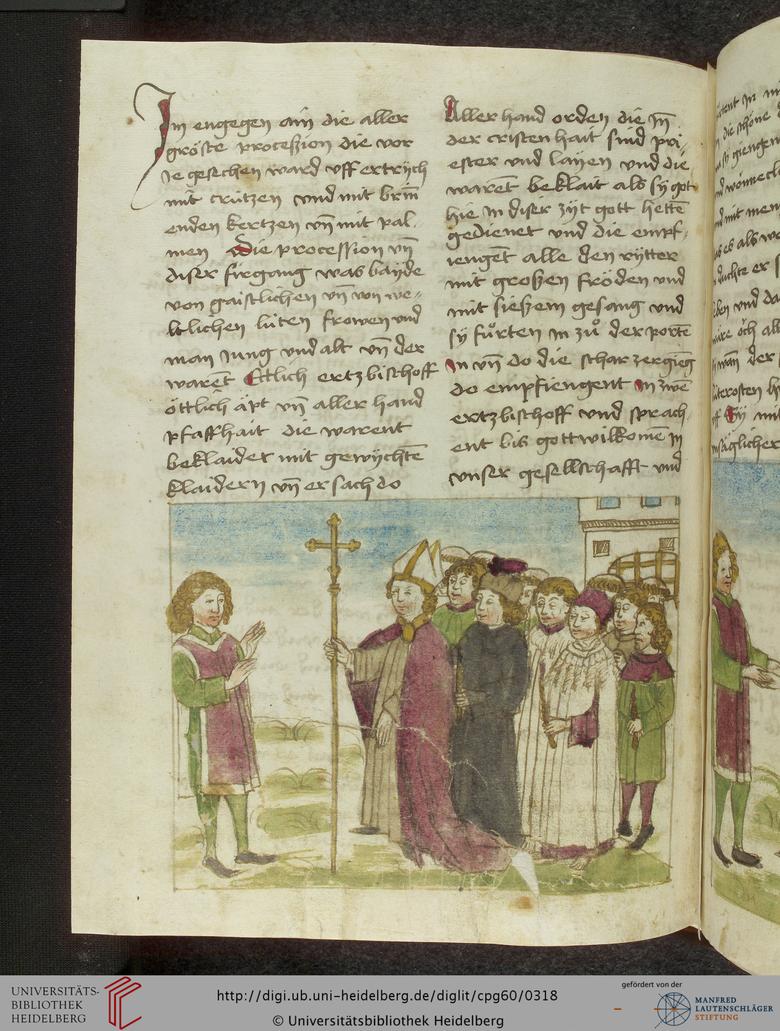 Im engegen ain die aller
gröste proceßion die vor
ie gesechen ward vff ertrÿch
mit crützen vnd mit brin̄
enden kertzen vn̄ mit pal
men Die procession vn̄
diser firgang was baÿde
von gaistlichen vn̄ von we⸗
ltlichen lüten frowen vnd
man jung vnd alt vn̄ der
warēt Ettlich ertzbischoff
öttlich äpt vn̄ aller hand
pfaffhait die warent
beklaidet mit gewÿchtē
klaidern vn̄ er sach do
Aller hand orden die In̄
der cristenhait sind pri⸗
ester vnd laÿen vnd die
warēt beklait als sÿ got
hie in diser zÿt gott hettē
gedienet vnd die empf⸗
iengēt alle den rÿtter
mit großen fröden vnd
mit sießem gesang vnd
sÿ fůrten in zů der portē
In vn̄ do die schar zergieg
do empfiengent In zwē
ertzbischoff vnd sprach
ent bis gottwilkomē in
vnser gesellschafft vnd
UNIVERSITÄTS-
BIBLIOTHEK
HEIDELBERG
http://digi.ub.uni-heidelberg.de/diglit/cpg60/0318
© Universitätsbibliothek Heidelberg
gefördert von der
MANFRED
LAUTENSCHLÄGER
STIFTUNG